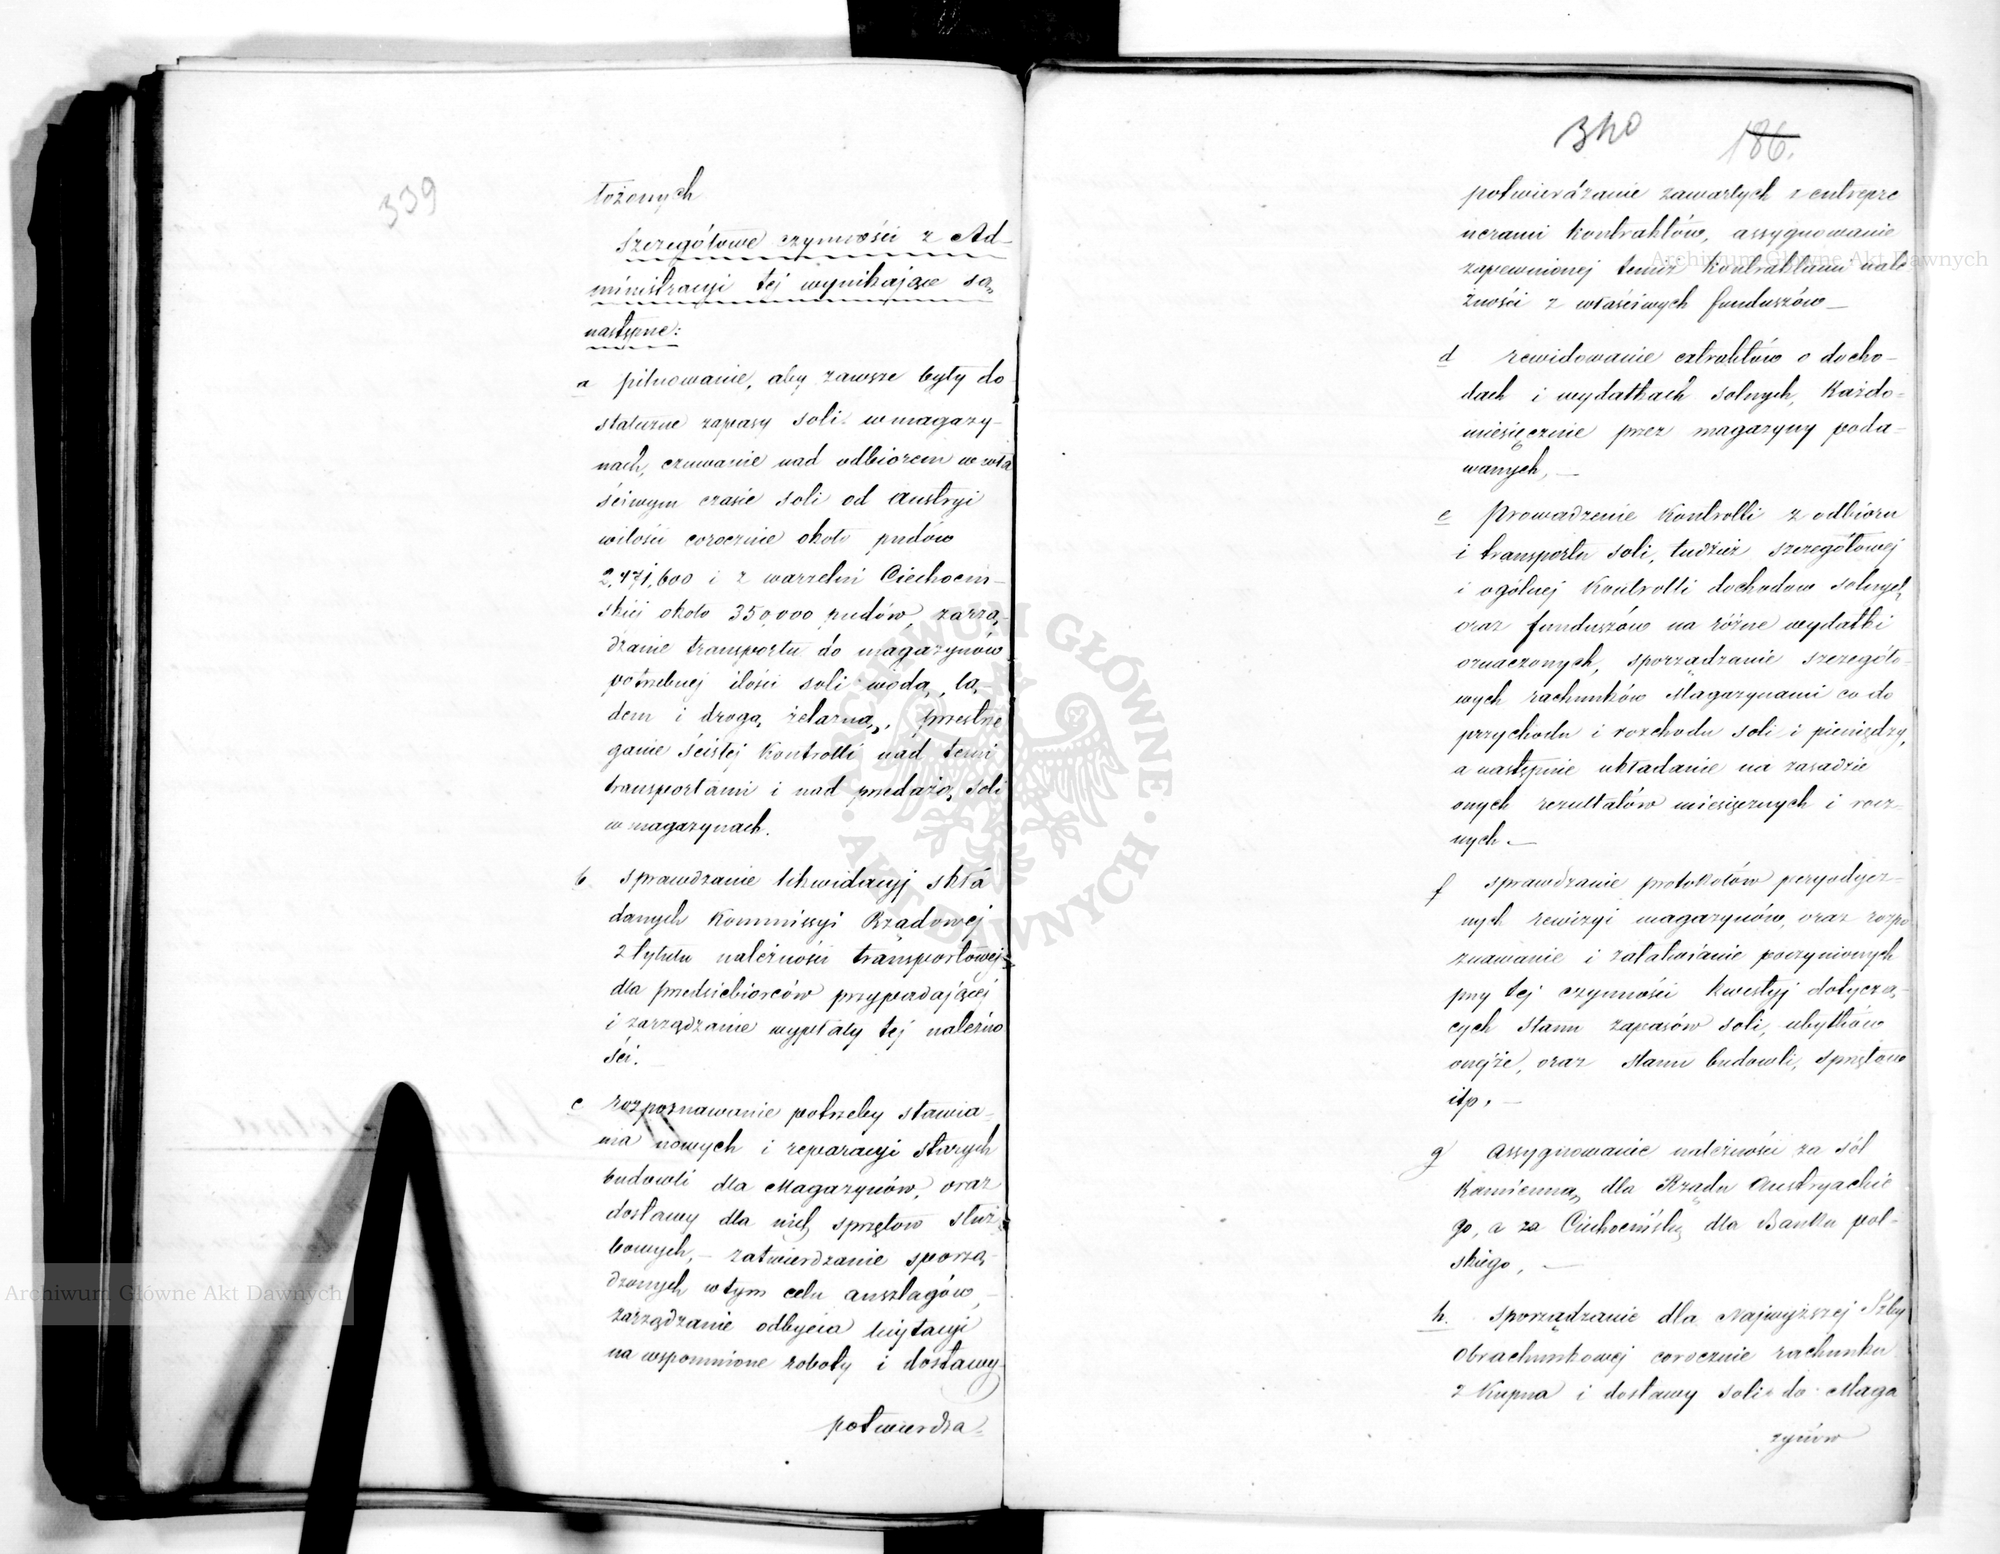 339
łożonych
Szczegółowe czynności z Ad-
ministracyi tej wynikające są
następne:
a pilnowanie, aby zawsze były do-
stateczne zapasy soli w magazy-
nach, czuwanie nad odbiorem w wła
ściwym czasie soli od Austryi
w ilości corocznie około pudów
2,471,600 i z warzelni Ciechocin-
skiéj około 350,000 pudów, zarzą-
dzanie transportu do magazynów
potrzebnej ilości soli wodą, lą-
dem i drogą żelazną, przestrze
ganie ścisłej kontrolli nad temi
transportami i nad przedażą soli
w magazynach.
b. sprawdzanie likwidacyj skła
danych Kommissyi Rządowej
z tytułu należności transportowej
dla przedsiebiorców przypadającej
i zarządzanie wypłaty tej należno
ści. —
c rozpoznawanie potrzeby stawia-
nia nowych i reparacyi starych
budowli dla Magazynów, oraz
dostawy dla nich sprzętów służ-
bowych, — zatwierdzanie sporzą-
dzonych w tym celu anszlagów, —
zarządzanie odbycia licytacyi
na wspomnione roboty i dostawy
potwierdza-
340 186.
potwierdzanie zawartych z entrepre
nerami kontraktów, assygnowanie
zapewnionej temiż kontraktami nale
żności z właściwych funduszów —
d rewidowanie extraktów o docho-
dach i wydatkach solnych, każdo-
miesięcznie przez magazyny poda-
wanych, —
e Prowadzenie kontrolli z odbioru
i transportu soli, tudzież szczegółowej
i ogólnej kontrolli dochodow solnych,
oraz funduszów na różne wydatki
oznaczonych, sporządzanie szczegóło-
wych rachunków Magazynami co do
przychodu i rozchodu soli i pieniędzy,
a następnie układanie na zasadzie
onych rezultatów miesięcznych i rocz-
nych. —
f sprawdzanie protokołów peryodycz-
nych rewizyi magazynów, oraz rozpo
znawanie i załatwianie poczynionych
przy tej czynności kwestyj dotyczą-
cych stanu zapasów soli, ubytków
onejże, oraz stanu budowli, sprzętów
itp. —
g assygnowanie należności za sól
Kamienną dla Rządu Austryackie
go, a za Ciechocińską dla Banku pol-
skiego, —
h. sporządzanie dla Najwyższej Izby
Obrachunkowej corocznie rachunku
z kupna i dostawy soli do Maga
zynów
Archiwum Główne Akt Dawnych
Archiwum Główne Akt Dawnych
ARCHIWUM GŁÓWNE • AKT DAWNYCH •